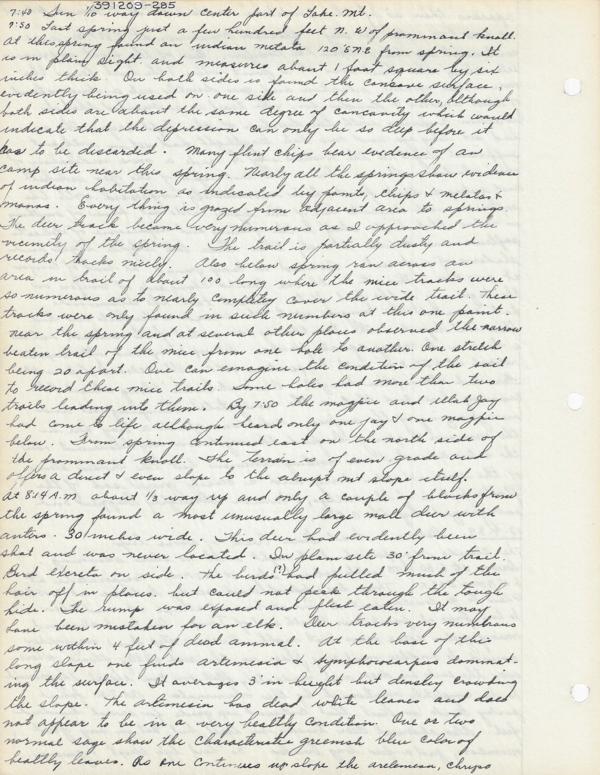 391209-285
7:40 Sun 1/10 way down center part of Lake. Mt.
7:50 Last spring just a few hundred feet N. W of prominant knoll.
At this spring found an indian metate 120' ENE from spring. It
is in plain sight. and measures about 1 foot square by six
inches thick. On both sides is found the concave surface,
evidently being used on one side and then the other, although
both sides are about the same degree of concavity which would
indicate that the depression can only be so deep before it
has to be discarded. Many flint chips bear evidence of an
camp site near this spring. Nearly all the springs show evidence
of indian habitation as indicated by points, chips & metatas &
manos. Every thing is grazed from adjacent area to springs.
The deer track become very numerous as I approached the
vicinity of the spring. The trail is partially dusty and
records tracks nicely. Also below spring ran across an
area in trail of about 100' long where the mice tracks were
so numerous as to nearly completey cover the wide trail. These
tracks were only found in such numbers at this one point.
near the spring and at several other places observed the narrow
beaten trail of the mice from one hole to another. One stretch
being 20' apart. One can emagine the condition of the soil
to record these mice trails. Some holes had more than two
trails leading into them. By 7:50 the magpie and Utah Jay
had come to life although heard only one jay & one magpie
below. From spring continued east on the north side of
the prominant knoll. The terrain is of even grade and
offers a direct & even slope to the abrupt mt slope itself.
At 8:14 A.M. about 1/3 way up and only a couple of blocks from
the spring found a most unusually large male deer with
antlers. 30 inches wide. This deer had evidently been
shot and was never located. In plain site 30' from trail.
Bird excreta on side. The birds(?) had pulled much of the
hair off in places. but could not peak through the tough
hide. The rump was exposed and flesh eaten. It may
have been mistaken for an elk. Deer tracks very numerous
some within 4 feet of dead animal. At the base of this
long slope one finds artemesia & symphorocarpus dominat-
ing the surface. It averages 3' in height but densley crowding
the slope. The artemesia has dead white leaves and does
not appear to be in a very healthy condition. One or two
normal sage show the characteristic greenish blue color of
healthy leaves. As one continues up slope the artemesia,